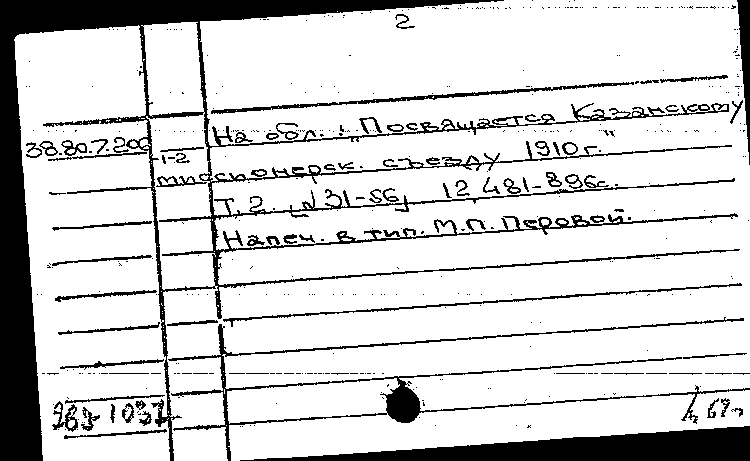 2
38.80.7.206 На обл.: „Посвящается Казанскому
1-2 миссионерск. съезду 1910 г."
Т. 2. [№31-56] 12, 481-896с.
Напеч. в тип. М.П. Перовой.